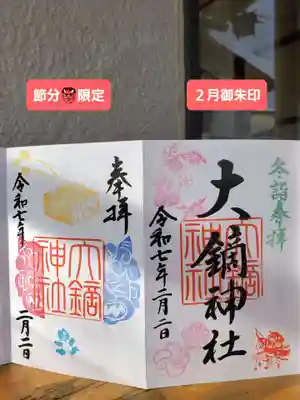 節分👹限定
2月御朱印
冬詣奉拝
大鏑神社
大鏑神社
令和七年二月二日
奉拝
大鏑神社
令和七年
二月二日